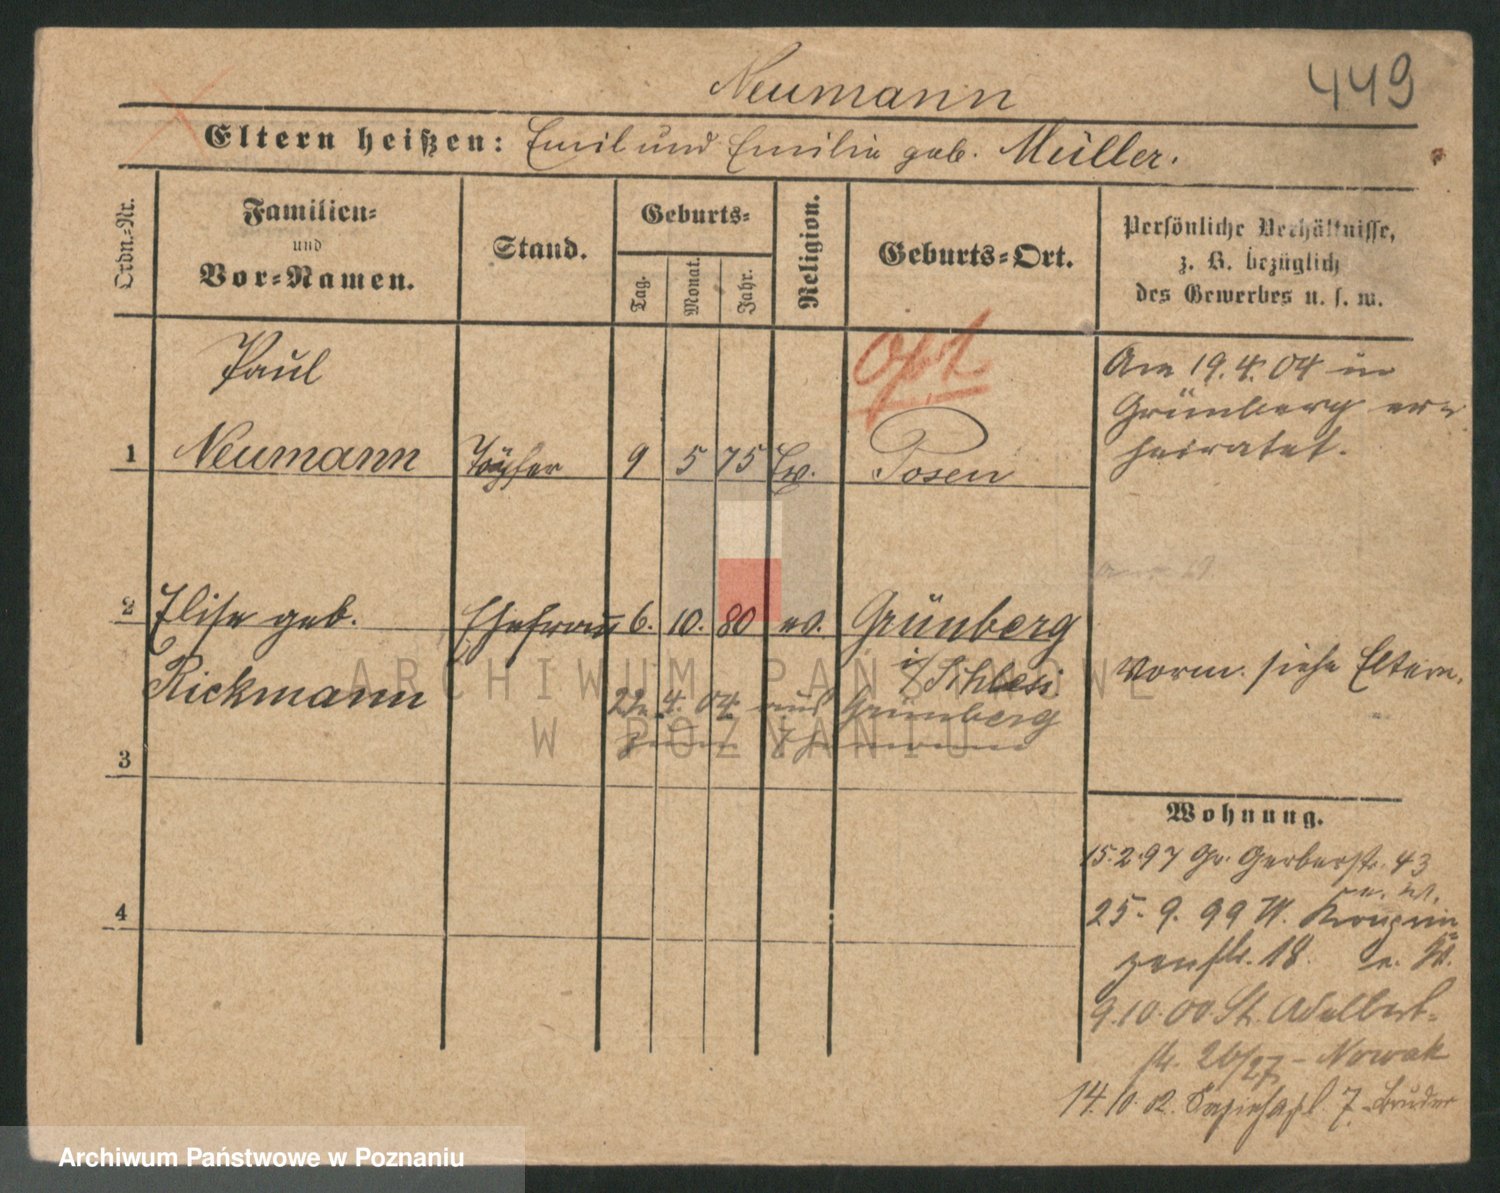 Neumann
449
Eltern heißen: Emil und Emilie geb. Müller.
Ordn.-Nr.
Familien-
und
Vor-Namen.
Stand.
Geburts-
Tag.
Monat.
Jahr.
Religion.
Geburts-Ort.
Persönliche Verhältnisse,
z. B. bezüglich
des Gewerbes u. s. w.
Opt
Paul
1 Neumann Töpfer 9 5 75 Ev. Posen
Am 19.4.04 in
Grünberg ver-
heiratet.
2 Elise geb. Ehefrau 6. 10. 80 ev. Grünberg
Rickmann i/Schlesi
22. 4. 04 aus Grünberg
zum Ehemann
Vorm. siehe Eltern.
3
4
Wohnung.
15.2.97 Gr. Gerberstr. 43
25.9.99 W. Kronprin-
zenstr. 18.
9.10.00 St. Adalbert-
str. 26/27 - Nowak
14.10.02. Sapiehapl. 7. Bruder
ARCHIWUM PAŃSTWOWE
W POZNANIU
Archiwum Państwowe w Poznaniu